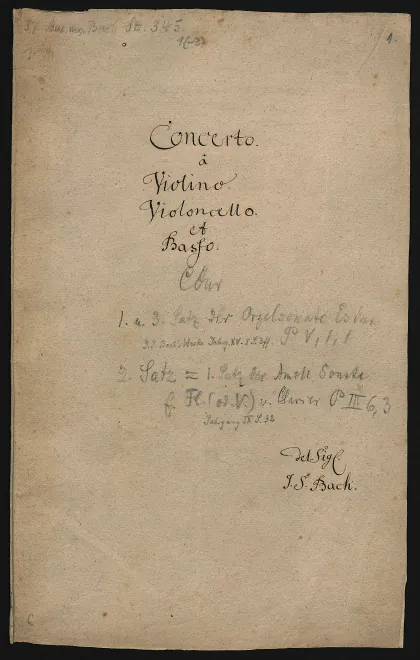 Mus. ms. Bach St. 345.
1.
Concerto.
à
Violino.
Violoncello.
et
Basso.
C Dur
1. u. 3. Satz der Orgelsonate Es dur
P V, 1, 1
2. Satz = 1. Satz der A moll Sonate
f. Fl. (od. V.) u. Clavier P III 6, 3
Jahrgang IX S. 32
del Sigl.
J. S. Bach.
C